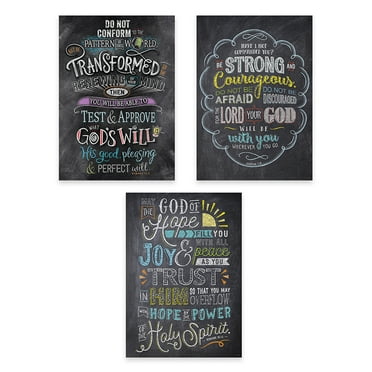 DO NOT
CONFORM TO THE
PATTERN OF THIS WORLD,
BUT BE
TRANSFORMED
BY THE
RENEWING OF YOUR MIND
THEN
YOU WILL BE ABLE TO
TEST & APPROVE
WHAT
GOD'S WILL IS
His good, pleasing
& PERFECT will.
HAVE I NOT
COMMANDED YOU?
BE STRONG AND
Courageous.
DO NOT BE AFRAID
DO NOT BE DISCOURAGED
FOR THE LORD YOUR GOD
WILL BE
with you
WHEREVER YOU GO
MAY THE GOD OF
Hope
FILL YOU
WITH ALL
JOY & peace
AS YOU
TRUST
IN HIM SO THAT YOU MAY
OVERFLOW
WITH HOPE BY THE POWER
OF THE Holy Spirit.